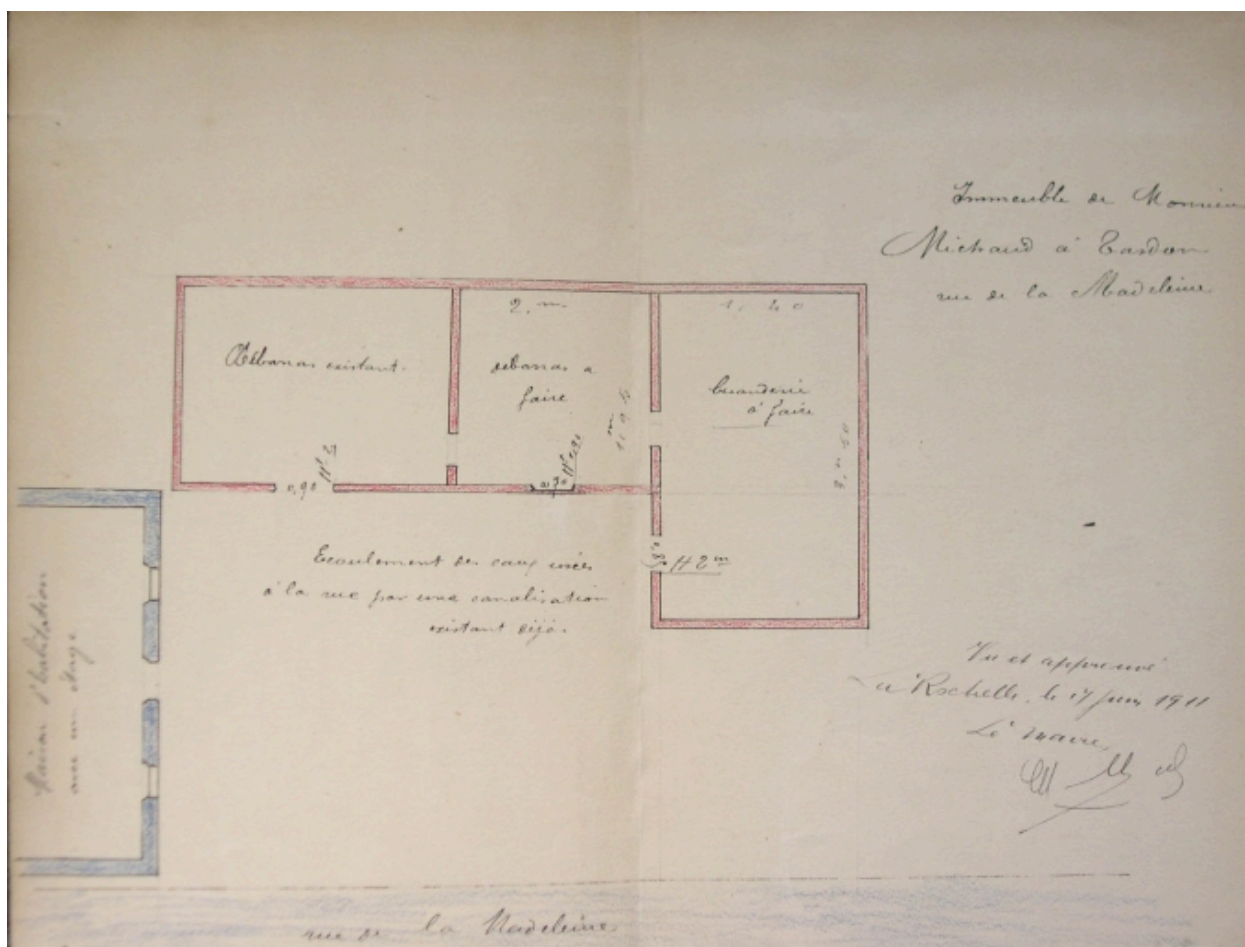 Immeuble de Monsieur
Michaud à Tasdon
rue de la Madeleine
2. m
1. 40
Débarras existant.
débarras a
faire
buanderie
à faire
1 m 95
3 m 50
0,90
H 2
0,70
H 0,90
0,85
H 2 m
Ecoulement des eaux usées
à la rue par une canalisation
existant déjà.
Maison d'habitation
avec un étage
Vu et approuvé
La Rochelle, le 17 juin 1911
Le maire,
rue de la Madeleine